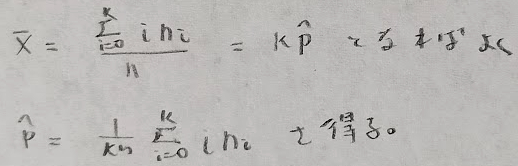 x̄ = \frac{\sum_{i=0}^{k} i n_i}{n} = k\hat{p} とすればよく
\hat{p} = \frac{1}{kn} \sum_{i=0}^{k} i n_i を得る。